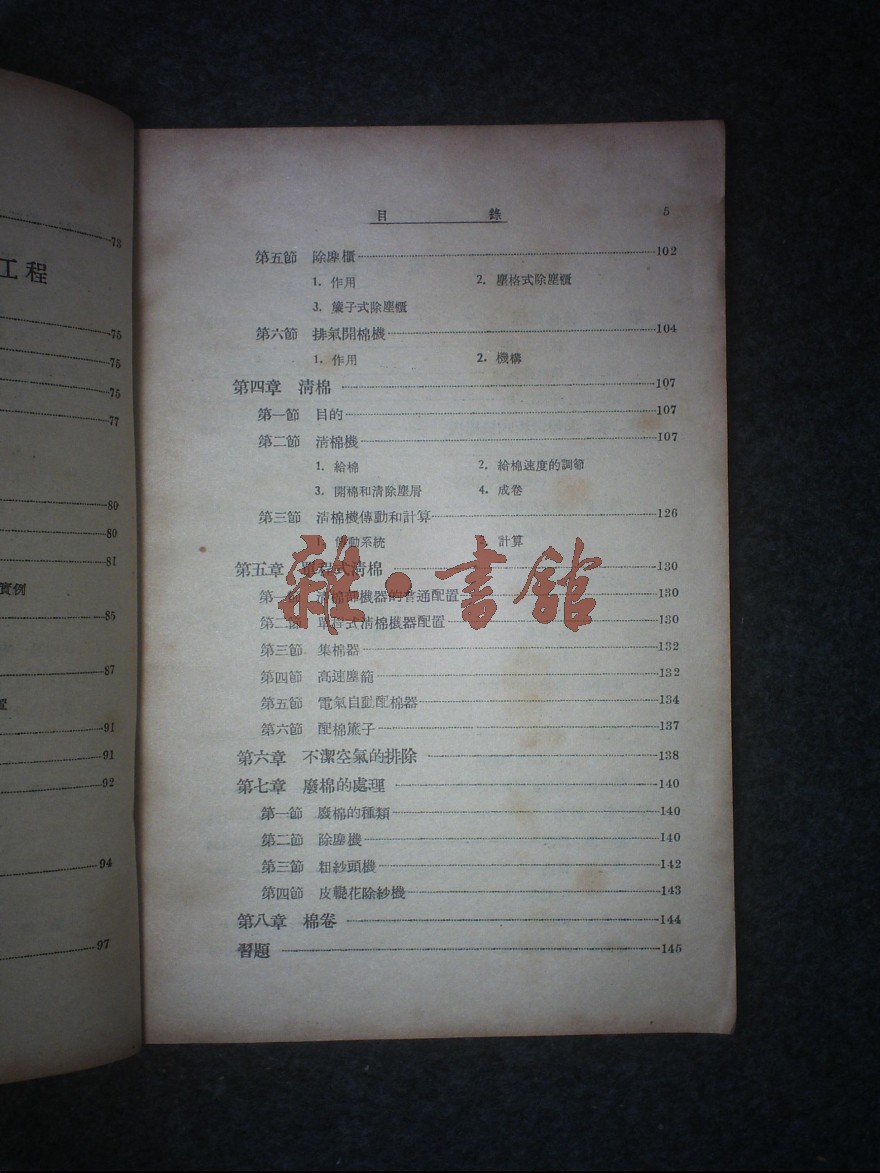 73
工程
75
75
75
77
80
80
81
實例
85
87
91
91
92
94
97
目 錄 5
第五節 除塵櫃 102
1. 作用 2. 塵格式除塵櫃
3. 簾子式除塵櫃
第六節 排氣開棉機 104
1. 作用 2. 機構
第四章 清棉 107
第一節 目的 107
第二節 清棉機 107
1. 給棉 2. 給棉速度的調節
3. 開棉和清除塵屑 4. 成卷
第三節 清棉機傳動和計算 126
1. 傳動系統 2. 計算
第五章 單程式清棉 130
第一節 清棉部機器的普通配置 130
第二節 單程式清棉機器配置 130
第三節 集棉器 132
第四節 高速塵籠 132
第五節 電氣自動配棉器 134
第六節 配棉簾子 137
第六章 不潔空氣的排除 138
第七章 廢棉的處理 140
第一節 廢棉的種類 140
第二節 除塵機 140
第三節 粗紗頭機 142
第四節 皮輥花除紗機 143
第八章 棉卷 144
習題 145
雜·書館